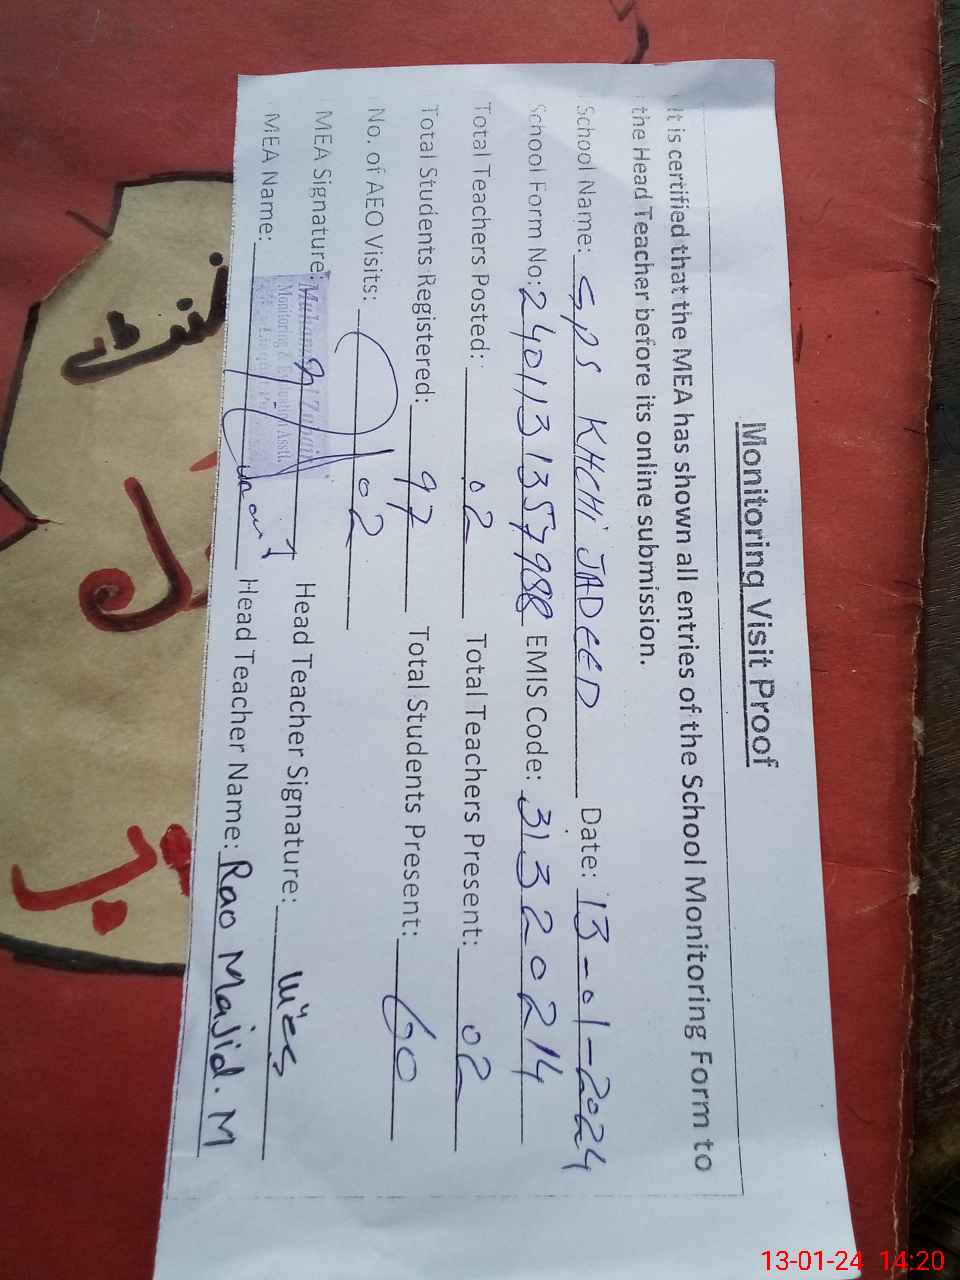 Monitoring Visit Proof
It is certified that the MEA has shown all entries of the School Monitoring Form to
the Head Teacher before its online submission.
School Name: GPS KHCHi JADEED Date: 13-01-2024
School Form No: 2401131357988 EMIS Code: 31320214
Total Teachers Posted: 02 Total Teachers Present: 02
Total Students Registered: 97 Total Students Present: 60
No. of AEO Visits: 02
MEA Signature: Head Teacher Signature:
Monitoring & Evaluation Asstt.
MEA Name: Head Teacher Name: Rao Majid. M
13-01-24 14:20